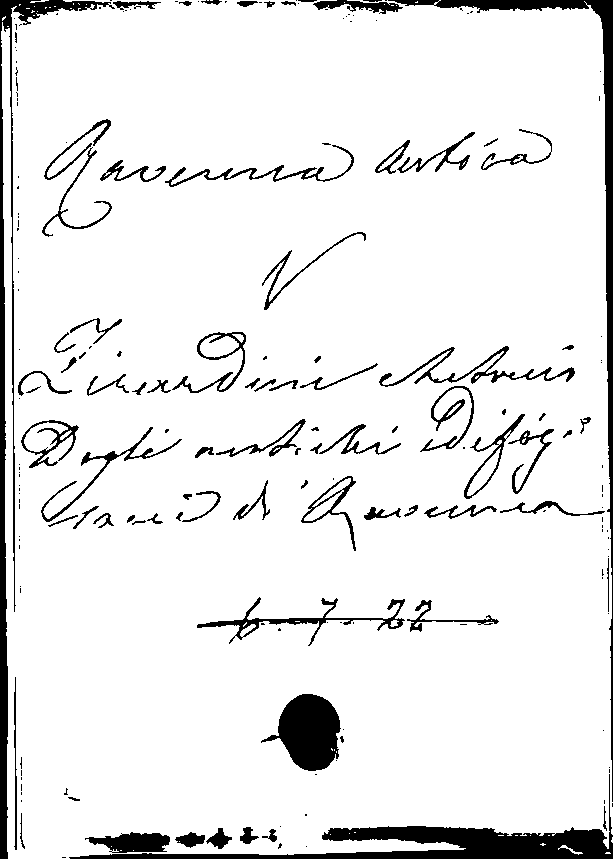 Ravenna antica
V
Zirardini Antonio
Degli antichi Edifizi
sacri di Ravenna
6. 7. 22